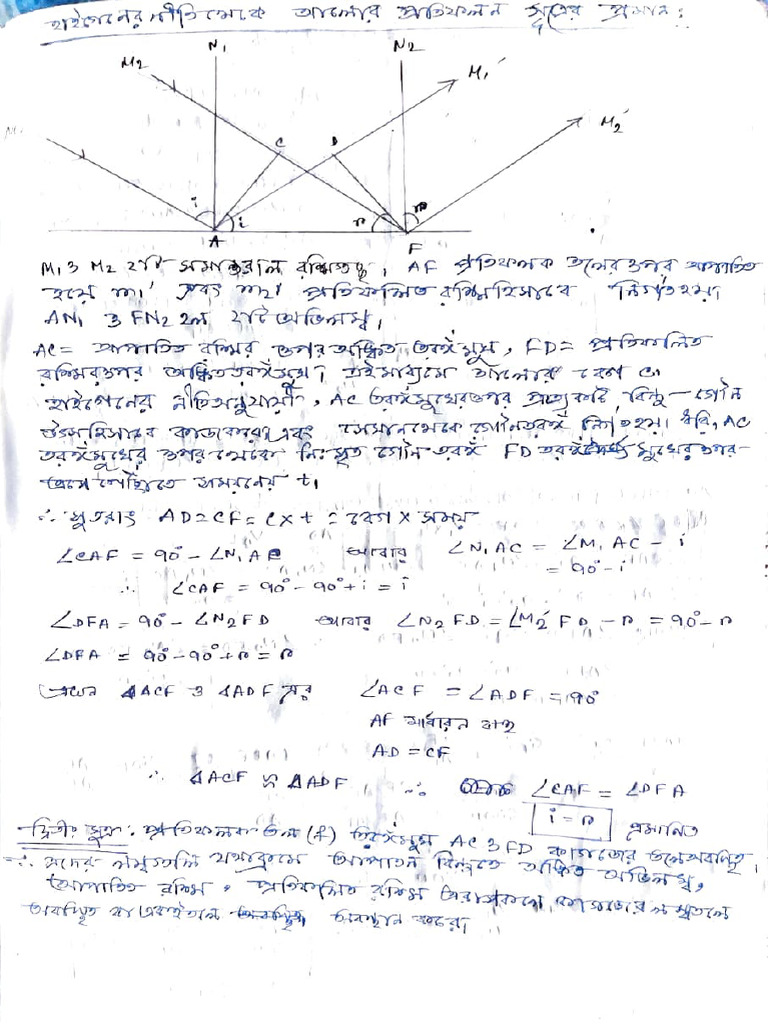 হাইগেনের নীতি থেকে আলোর প্রতিফলন সূত্রের প্রমান:
N₁ N₂
M₂ M₁′
M₂′
C D
i i r r
A F
M₁ ও M₂ ২টি সমান্তরাল রশ্মিগুচ্ছ, AF প্রতিফলক তলের ওপর আপতিত
হয়ে m₁′ এবং m₂′ প্রতিফলিত রশ্মি হিসাবে নির্গত হয়।
AN₁ ও FN₂ হল ২টি অভিলম্ব,
AC = আপাতিত রশ্মির ওপর অঙ্কিত তরঙ্গমুখ, FD = প্রতিফলিত
রশ্মির ওপর অঙ্কিত তরঙ্গমুখ। এই মাধ্যমে আলোর বেগ C,
হাইগেনের নীতি অনুযায়ী, AC তরঙ্গমুখের ওপর প্রত্যেকটি বিন্দু - গৌন
উৎস হিসাবে কাজ করে এবং সেখান থেকে গৌন তরঙ্গ নির্গত হয়। ধরি, AC
তরঙ্গমুখের ওপর থেকে নিঃসৃত গৌন তরঙ্গ FD তরঙ্গ মুখের ওপর
এসে পৌঁছাতে সময় নেয় t,
∴ সুতরাং AD = CF = C × t = বেগ × সময়
∠CAF = 90° - ∠N₁AC আবার ∠N₁AC = ∠M₁AC - i
= 90° - i
∴ ∠CAF = 90° - 90° + i = i
∠DFA = 90° - ∠N₂FD আবার ∠N₂FD = ∠M₂′FD - r = 90° - r
∠DFA = 90° - 90° + r = r
এখন ΔACF ও ΔADF এর ∠ACF = ∠ADF = 90°
AF সাধারন বাহু
AD = CF
∴ ΔACF ≅ ΔADF ∴ ∠CAF = ∠DFA
i = r প্রমানিত
দ্বিতীয় সূত্র: প্রতিফলক তল তরঙ্গমুখ AC ও FD কাগজের তলে অবস্থিত,
∴ এদের লম্বগুলি যথাক্রমে আপাতন বিন্দুতে অঙ্কিত অভিলম্ব,
আপাতিত রশ্মি, প্রতিফলিত রশ্মি কাগজের লম্বতলে
অবস্থিত বা একই তলে অবস্থান করে।